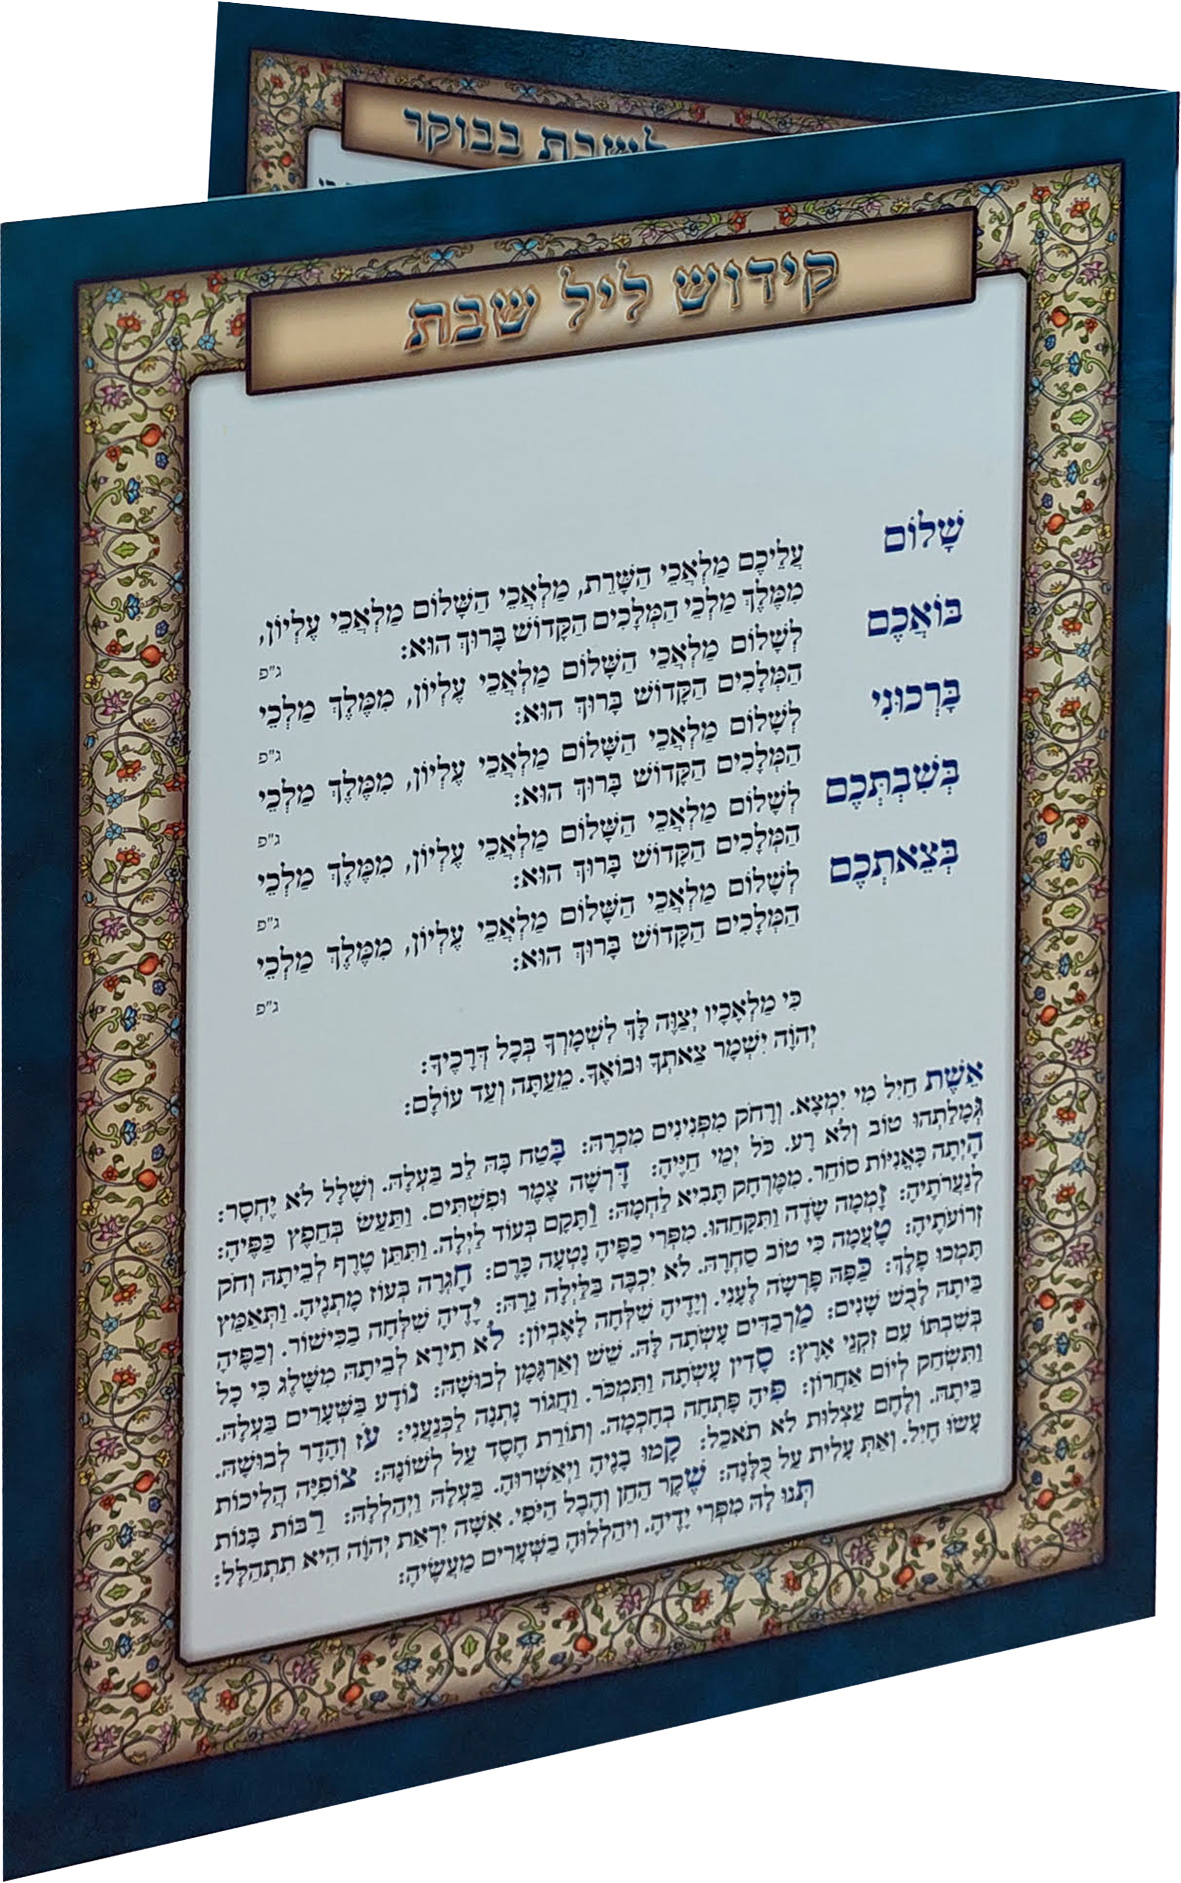 לשבת בבוקר
קידוש ליל שבת
שָׁלוֹם עֲלֵיכֶם מַלְאֲכֵי הַשָּׁרֵת, מַלְאֲכֵי הַשָּׁלוֹם מַלְאֲכֵי עֶלְיוֹן,
מִמֶּלֶךְ מַלְכֵי הַמְּלָכִים הַקָּדוֹשׁ בָּרוּךְ הוּא: ג"פ
בּוֹאֲכֶם לְשָׁלוֹם מַלְאֲכֵי הַשָּׁלוֹם מַלְאֲכֵי עֶלְיוֹן, מִמֶּלֶךְ מַלְכֵי
הַמְּלָכִים הַקָּדוֹשׁ בָּרוּךְ הוּא: ג"פ
בָּרְכוּנִי לְשָׁלוֹם מַלְאֲכֵי הַשָּׁלוֹם מַלְאֲכֵי עֶלְיוֹן, מִמֶּלֶךְ מַלְכֵי
הַמְּלָכִים הַקָּדוֹשׁ בָּרוּךְ הוּא: ג"פ
בְּשִׁבְתְּכֶם לְשָׁלוֹם מַלְאֲכֵי הַשָּׁלוֹם מַלְאֲכֵי עֶלְיוֹן, מִמֶּלֶךְ מַלְכֵי
הַמְּלָכִים הַקָּדוֹשׁ בָּרוּךְ הוּא: ג"פ
בְּצֵאתְכֶם לְשָׁלוֹם מַלְאֲכֵי הַשָּׁלוֹם מַלְאֲכֵי עֶלְיוֹן, מִמֶּלֶךְ מַלְכֵי
הַמְּלָכִים הַקָּדוֹשׁ בָּרוּךְ הוּא: ג"פ
כִּי מַלְאָכָיו יְצַוֶּה לָּךְ לִשְׁמָרְךָ בְּכָל דְּרָכֶיךָ:
יְהֹוָה יִשְׁמָר צֵאתְךָ וּבוֹאֶךָ. מֵעַתָּה וְעַד עוֹלָם:
אֵשֶׁת חַיִל מִי יִמְצָא. וְרָחֹק מִפְּנִינִים מִכְרָהּ: בָּטַח בָּהּ לֵב בַּעְלָהּ. וְשָׁלָל לֹא יֶחְסָר:
גְּמָלַתְהוּ טוֹב וְלֹא רָע. כֹּל יְמֵי חַיֶּיהָ: דָּרְשָׁה צֶמֶר וּפִשְׁתִּים. וַתַּעַשׂ בְּחֵפֶץ כַּפֶּיהָ:
הָיְתָה כָּאֳנִיּוֹת סוֹחֵר. מִמֶּרְחָק תָּבִיא לַחְמָהּ: וַתָּקָם בְּעוֹד לַיְלָה. וַתִּתֵּן טֶרֶף לְבֵיתָהּ וְחֹק
לְנַעֲרֹתֶיהָ: זָמְמָה שָׂדֶה וַתִּקָּחֵהוּ. מִפְּרִי כַפֶּיהָ נָטְעָה כָּרֶם: חָגְרָה בְעוֹז מָתְנֶיהָ. וַתְּאַמֵּץ
זְרוֹעֹתֶיהָ: טָעֲמָה כִּי טוֹב סַחְרָהּ. לֹא יִכְבֶּה בַלַּיְלָה נֵרָהּ: יָדֶיהָ שִׁלְּחָה בַכִּישׁוֹר. וְכַפֶּיהָ
תָּמְכוּ פָלֶךְ: כַּפָּהּ פָּרְשָׂה לֶעָנִי. וְיָדֶיהָ שִׁלְּחָה לָאֶבְיוֹן: לֹא תִירָא לְבֵיתָהּ מִשָּׁלֶג כִּי כָל
בֵּיתָהּ לָבֻשׁ שָׁנִים: מַרְבַדִּים עָשְׂתָה לָּהּ. שֵׁשׁ וְאַרְגָּמָן לְבוּשָׁהּ: נוֹדָע בַּשְּׁעָרִים בַּעְלָהּ.
בְּשִׁבְתּוֹ עִם זִקְנֵי אָרֶץ: סָדִין עָשְׂתָה וַתִּמְכֹּר. וַחֲגוֹר נָתְנָה לַכְּנַעֲנִי: עֹז וְהָדָר לְבוּשָׁהּ.
וַתִּשְׂחַק לְיוֹם אַחֲרוֹן: פִּיהָ פָּתְחָה בְחָכְמָה. וְתוֹרַת חֶסֶד עַל לְשׁוֹנָהּ: צוֹפִיָּה הֲלִיכוֹת
בֵּיתָהּ. וְלֶחֶם עַצְלוּת לֹא תֹאכֵל: קָמוּ בָנֶיהָ וַיְאַשְּׁרוּהָ. בַּעְלָהּ וַיְהַלְלָהּ: רַבּוֹת בָּנוֹת
עָשׂוּ חָיִל. וְאַתְּ עָלִית עַל כֻּלָּנָה: שֶׁקֶר הַחֵן וְהֶבֶל הַיֹּפִי. אִשָּׁה יִרְאַת יְהֹוָה הִיא תִתְהַלָּל:
תְּנוּ לָהּ מִפְּרִי יָדֶיהָ. וִיהַלְלוּהָ בַשְּׁעָרִים מַעֲשֶׂיהָ: